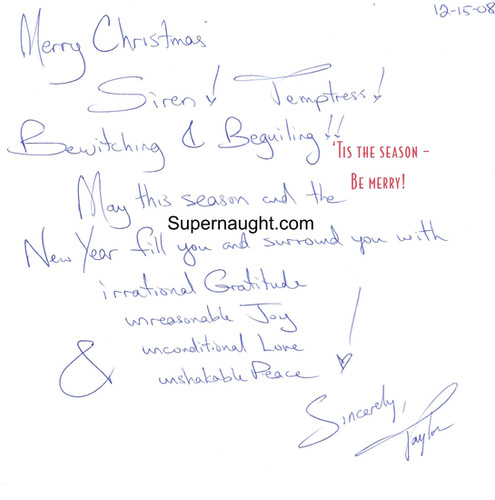 12-15-08
Merry Christmas
Siren! Temptress!
Bewitching & Beguiling!!
'TIS THE SEASON –
BE MERRY!
May this season and the
Supernaught.com
New Year fill you and surround you with
irrational Gratitude
unreasonable Joy
unconditional Love
& unshakable Peace !
Sincerely,
Taylor